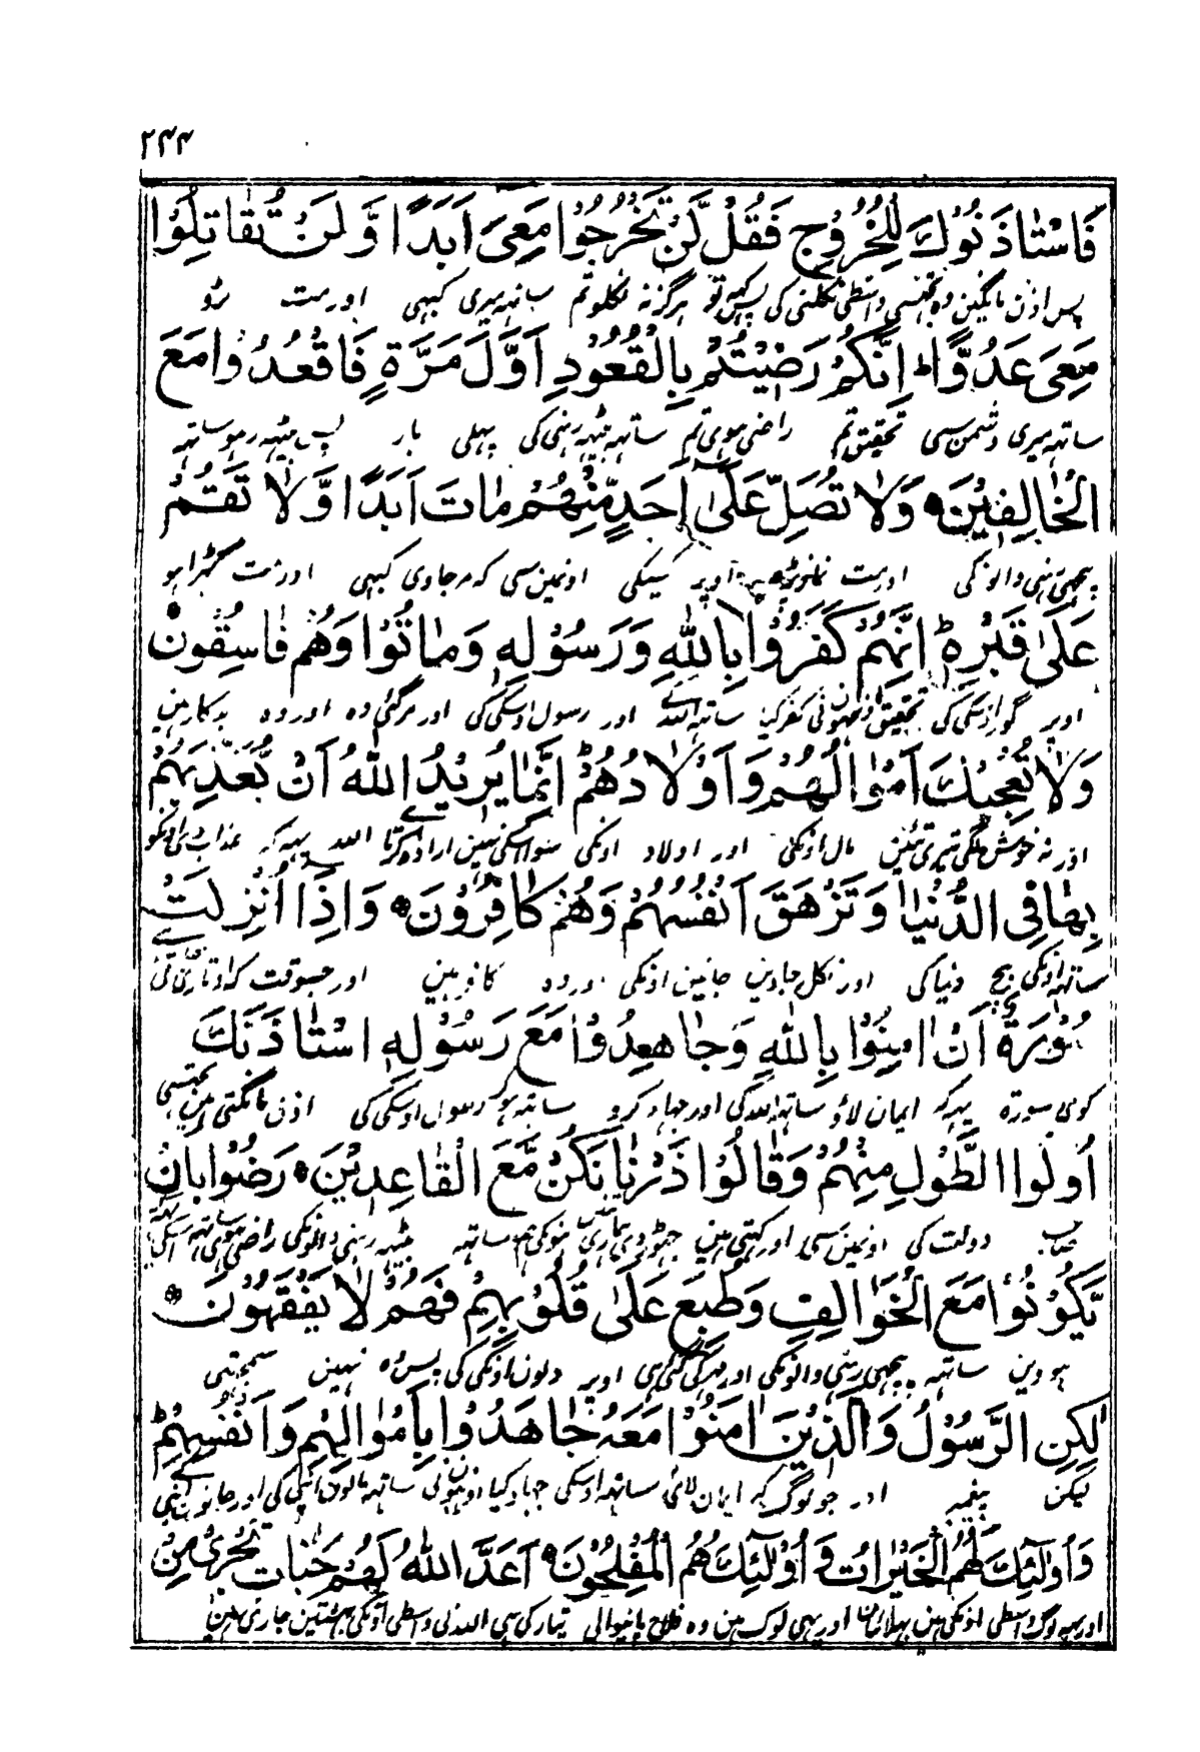 ۲۴۴
فَاسْتَاذَنُوْكَ لِلْخُرُوْجِ فَقُلْ لَّنْ تَخْرُجُوْا مَعِیَ اَبَدًا وَّ لَنْ تُقَاتِلُوْا
پس اذن مانگین وہ تجہسی واسطی نکلنی کی پس کہہ تو ہرگز نہ نکلو تم ساتہہ میری کبہی اور مت لڑو
مَعِیَ عَدُوًّا ؕ اِنَّكُمْ رَضِیْتُمْ بِالْقُعُوْدِ اَوَّلَ مَرَّةٍ فَاقْعُدُوْا مَعَ
ساتہہ میری دشمن سی تحقیق تم راضی ہوی تم ساتہہ بیٹہہ رہنی کی پہلی بار پس بیٹہہ رہو ساتہہ
الْخٰلِفِیْنَ وَلَا تُصَلِّ عَلٰۤی اَحَدٍ مِّنْهُمْ مَاتَ اَبَدًا وَّلَا تَقُمْ
پیچہی رہنی والونکی اور مت نماز پڑہ اوپر کسیکی اونمین سی کہ مرجاوی کبہی اور مت کہڑا ہو
عَلٰی قَبْرِهٖ ؕ اِنَّهُمْ كَفَرُوْا بِاللّٰهِ وَرَسُوْلِهٖ وَمَاتُوْا وَهُمْ فَاسِقُوْنَ
اوپر گور اوسکی کی تحقیق اونہون نی کفر کیا ساتہہ اللہ کے اور رسول اوسکی کی اور مرگئی وہ اور وہ بدکار ہین
وَلَا تُعْجِبْكَ اَمْوَالُهُمْ وَاَوْلَادُهُمْ ؕ اِنَّمَا یُرِیْدُ اللّٰهُ اَنْ یُّعَذِّبَهُمْ
اور نہ خوش لگی تیری تئین مال اونکی اور اولاد اونکی سوا اسکی نہین ارادہ کرتا اللہ یہہ کہ عذاب دی اونکو
بِهَا فِی الدُّنْیَا وَتَزْهَقَ اَنْفُسُهُمْ وَهُمْ كَافِرُوْنَ وَاِذَا اُنْزِلَتْ
ساتہہ اونکی بیچ دنیا کی اور نکل جاوین جانین اونکی اور وہ کافر ہین اور جسوقت کہ اوتاری جاتی ہے
سُوْرَةٌ اَنْ اٰمِنُوْا بِاللّٰهِ وَجَاهِدُوْا مَعَ رَسُوْلِهِ اسْتَاذَنَكَ
کوئی سورۃ یہہ کہ ایمان لاؤ ساتہہ اللہ کی اور جہاد کرو ساتہہ ہو رسول اوسکی کی اذن مانگتی ہین تجہسی
اُولُوا الطَّوْلِ مِنْهُمْ وَقَالُوْا ذَرْنَا نَكُنْ مَّعَ الْقَاعِدِیْنَ رَضُوْا بِاَنْ
صاحب دولت کی اونمین سی اور کہتی ہین چہوڑ دی ہمکو ہونکی ہم ساتہہ بیٹہہ رہنی والونکی راضی ہوی ساتہہ اسکی
یَّكُوْنُوْا مَعَ الْخَوَالِفِ وَطُبِعَ عَلٰی قُلُوْبِهِمْ فَهُمْ لَا یَفْقَهُوْنَ
ہووین ساتہہ پیچہی رہنی والونکی اور مہر کی گئی ہی اوپر دلون اونکی کی پس وہ نہین سمجہتی
لٰكِنِ الرَّسُوْلُ وَالَّذِیْنَ اٰمَنُوْا مَعَهٗ جَاهَدُوْا بِاَمْوَالِهِمْ وَاَنْفُسِهِمْ ؕ
لیکن پیغمبر اور جو لوگ کہ ایمان لائی ساتہہ اوسکی جہاد کیا اونہون نی ساتہہ مالون اپنی کی اور جانون اپنی کے
وَاُولٰٓئِكَ لَهُمُ الْخَیْرَاتُ وَاُولٰٓئِكَ هُمُ الْمُفْلِحُوْنَ اَعَدَّ اللّٰهُ لَهُمْ جَنّٰاتٍ تَجْرِیْ مِنْ
اور یہہ لوگ واسطی اونکی ہین بہلائیان اور یہی لوگ ہین وہ فلاح پانیوالی تیار کی ہی اللہ نی واسطی اونکی بہشتین جاری ہین